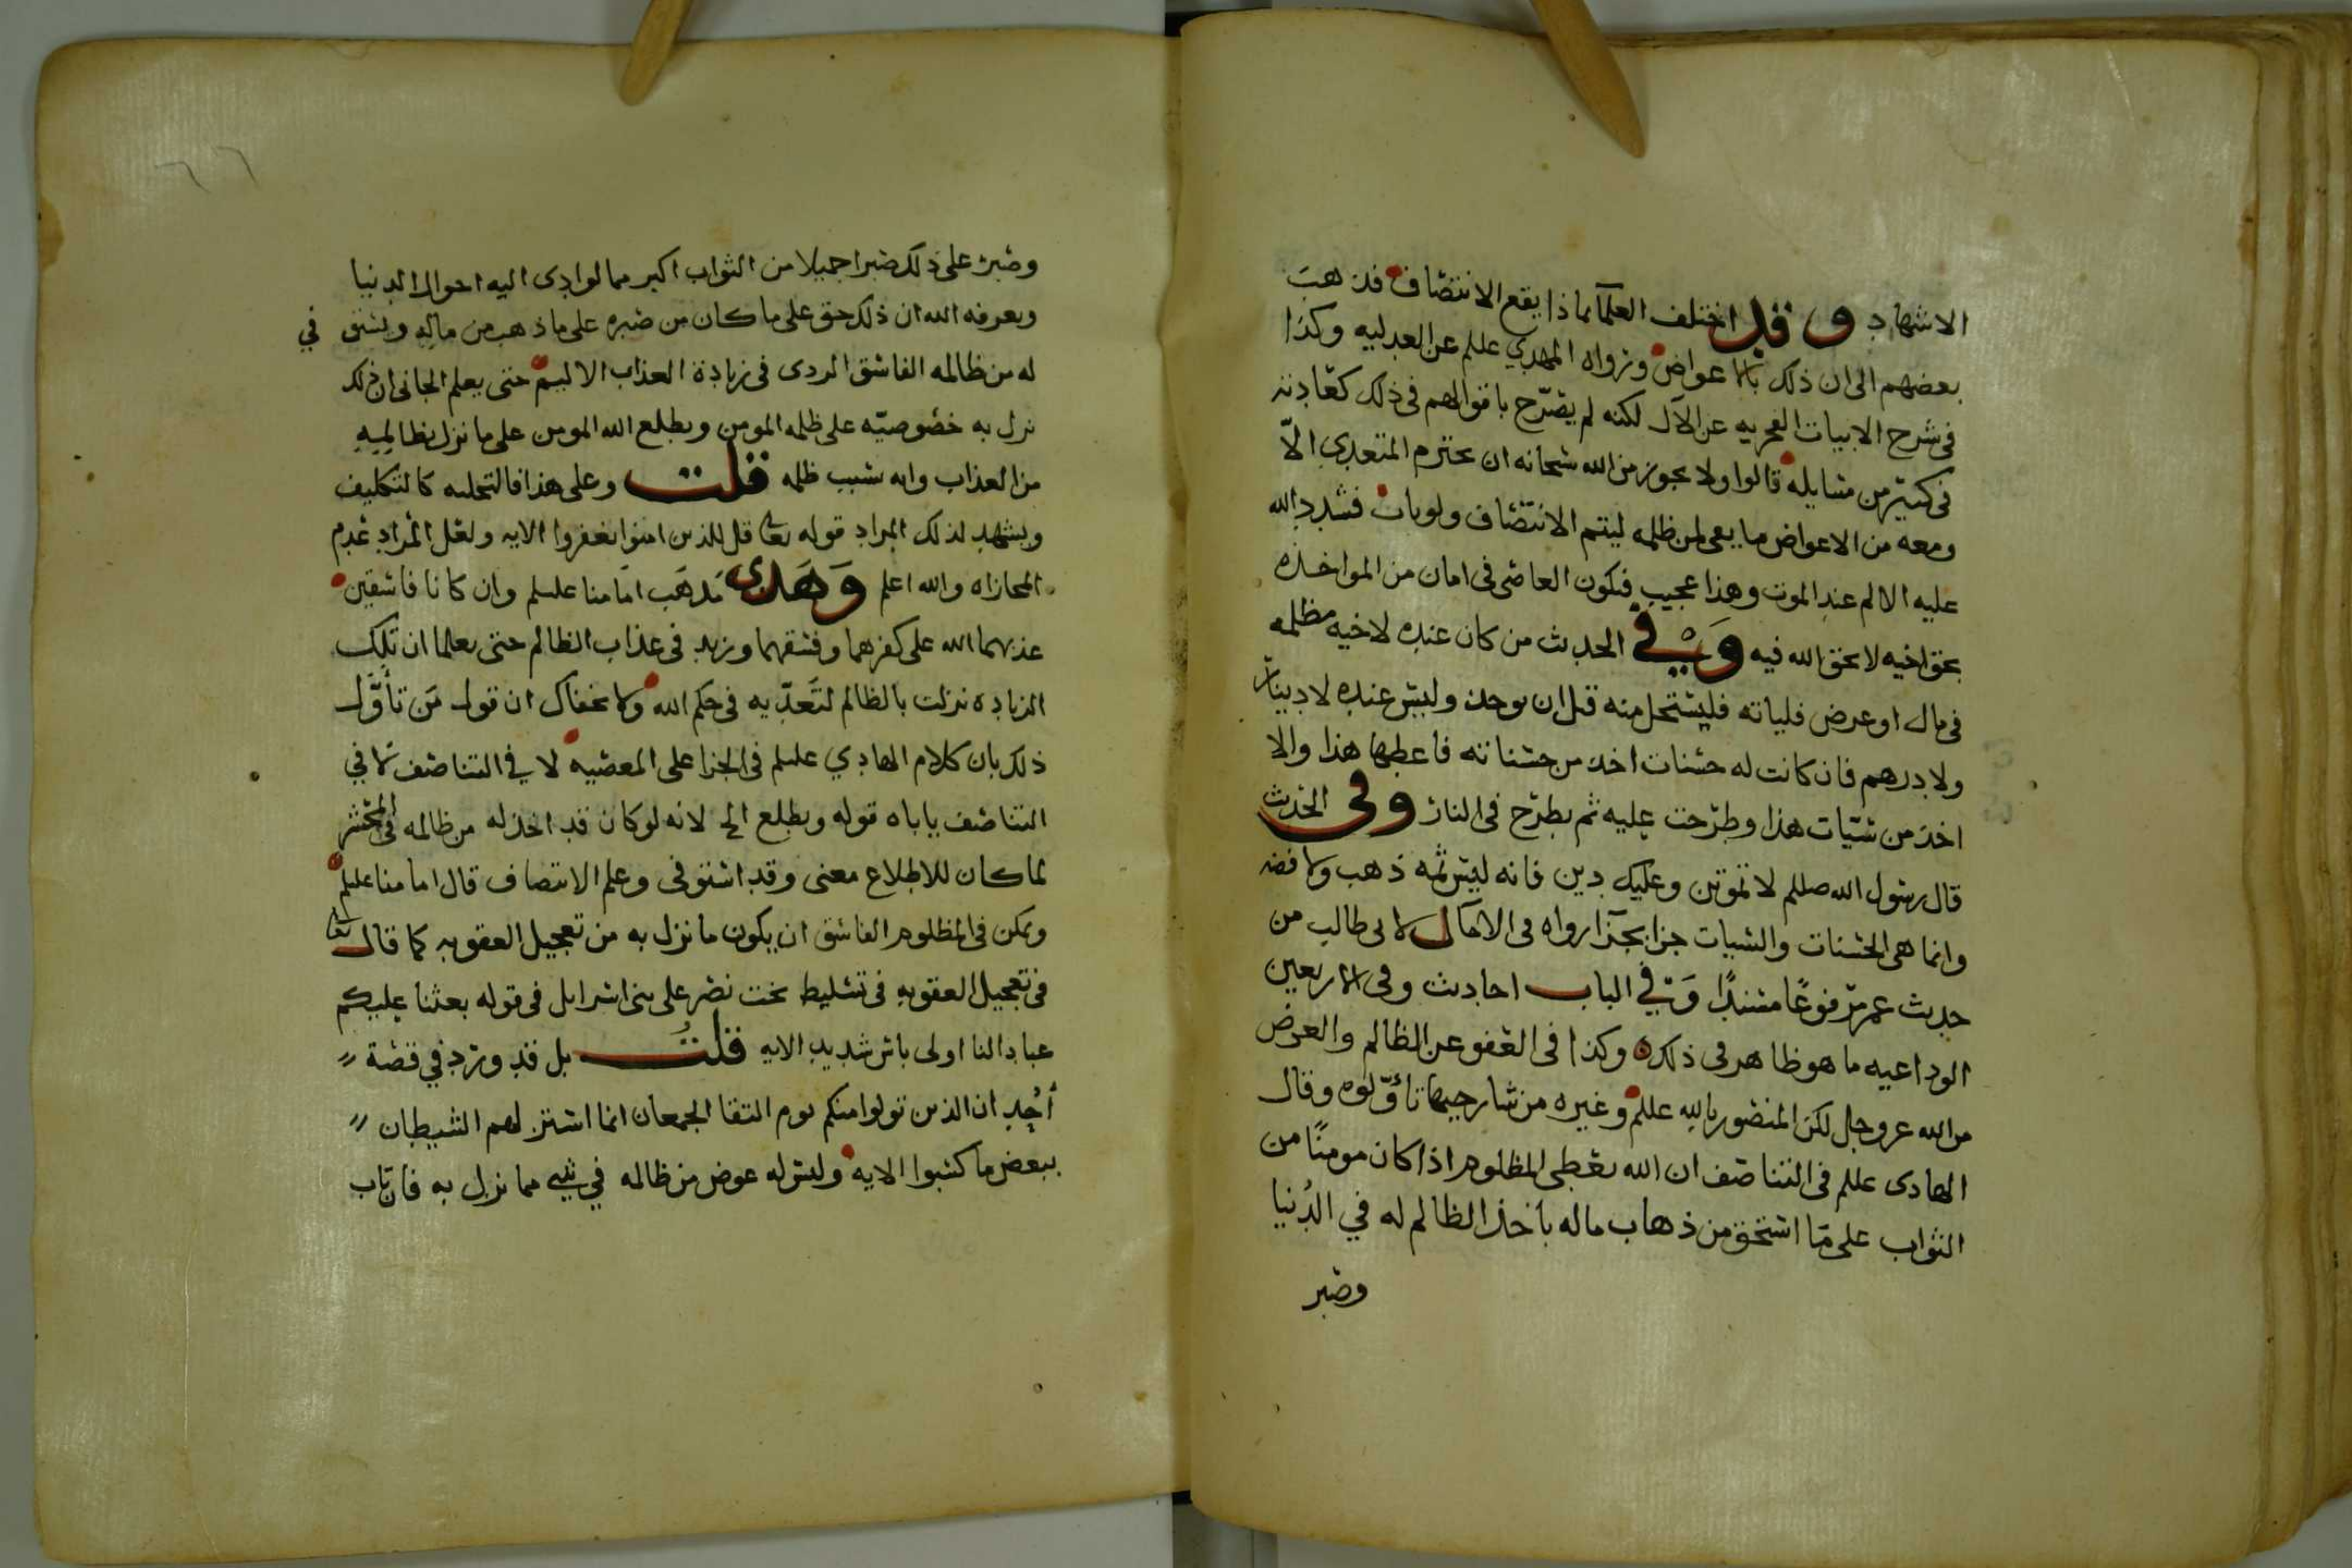 الاشهاد وقد اختلف العلما بماذا يقع الانتصاف فذهب
بعضهم الى ان ذلك بالاعواض ورواه المهدي عللم عن العدليه وكذا
في شرح الابيات الفخريه عن الآل لكنه لم يصرّح باقوالهم في ذلك كعادته
في كثير من مسايله قالوا ولا يجوز من الله سبحانه ان يخترم المتعدي الّا
ومعه من الاعواض ما يفي لمن ظلمه ليتم الانتصاف ولو بان فشدد الله
عليه الالم عند الموت وهذا عجيب فيكون العاصي في امان من المواخذه
بحق اخيه لا بحق الله فيه وَفي الحديث من كان عنده لاخيه مظلمه
في مال او عرض فلياته فليستحل منه قبل ان يوخذ وليس عنده لا دينار
ولا درهم فان كانت له حسنات اخذ من حسناته فاعطيها هذا والا
اخذ من سيّات هذا وطرحت عليه ثم يطرح في النار وفي الحديث
قال رسول الله صللم لا تموتن وعليك دين فانه ليس ثمه ذهب ولا فضه
وانما هي الحسنات والسيات جزا بجزا رواه في الامالي لابي طالب من
حديث عمر مرفوعًا مسندًا وَفي الباب احاديث وفي الاربعين
الوداعيه ما هو ظاهر في ذلك وكذا في العفو عن الظالم والعرض
من الله عز وجل لكن المنصور بالله عللم وغيره من شارحيها تأوّلوه وقال
الهادي عللم في التناصف ان الله يعطي المظلوم اذا كان مومنًا من
الثواب على مَا استحق من ذهاب ماله باخذ الظالم له في الدُنيا
وصبر
٦٦
وصبر على ذلك صبرا جميلا من الثواب اكبر مما لو ادى اليه احوال الدنيا
ويعرفه الله ان ذلك حق على ما كان من صبره على ما ذهب من ماله ويستوفي
له من ظالمه الفاسق الردى في زيادة العذاب الاليم حتى يعلم الجاني ان ذلك
نزل به خصوصيّه على ظلمه المومن ويطلع الله المومن على ما نزل بظالمِيهِ
من العذاب وانه بسبب ظلمه قلت وعلى هذا فالتخليه كالتكليف
ويشهد لذلك المراد قوله تعا قل للذين امنوا يغفروا الايه ولعل المراد عدم
المجازاه والله اعلم وَهَذي مَذهَب امامنا عللم وان كانا فاسقين
عذبهما الله على كفرهما وفسقهما وزيد في عذاب الظالم حتى يعلما ان تلك
الزياده نزلت بالظالم لتَعَدّيه في حكم الله ولا يخفاك ان قول مَن تأَوَّل
ذلك بان كلام الهادي عللم في الجزا على المعصيه لا في التناصف لا في
التناصف ياباه قوله ويطلع الخ لانه لو كان قد اخذ له من ظالمه في المحشر
لما كان للاطلاع معنى وقد استوفى وعلم الانتصاف قال امامنا عللم
ويمكن في المظلوم الفاسق ان يكون ما نزل به من تعجيل العقوبه كما قال تعا
في تعجيل العقوبه في تسليط بخت نصر على بني اسرايل في قوله بعثنا عليكم
عبادا لنا اولى باس شديد الايه قلتُ بل قد ورد في قصة
أُحُد ان الذين تولوا منكم يوم التقا الجمعان انما استزلهم الشيطان
ببعض ما كسبوا الايه وليس له عوض من ظالمه في شي مما نزل به فان تاب